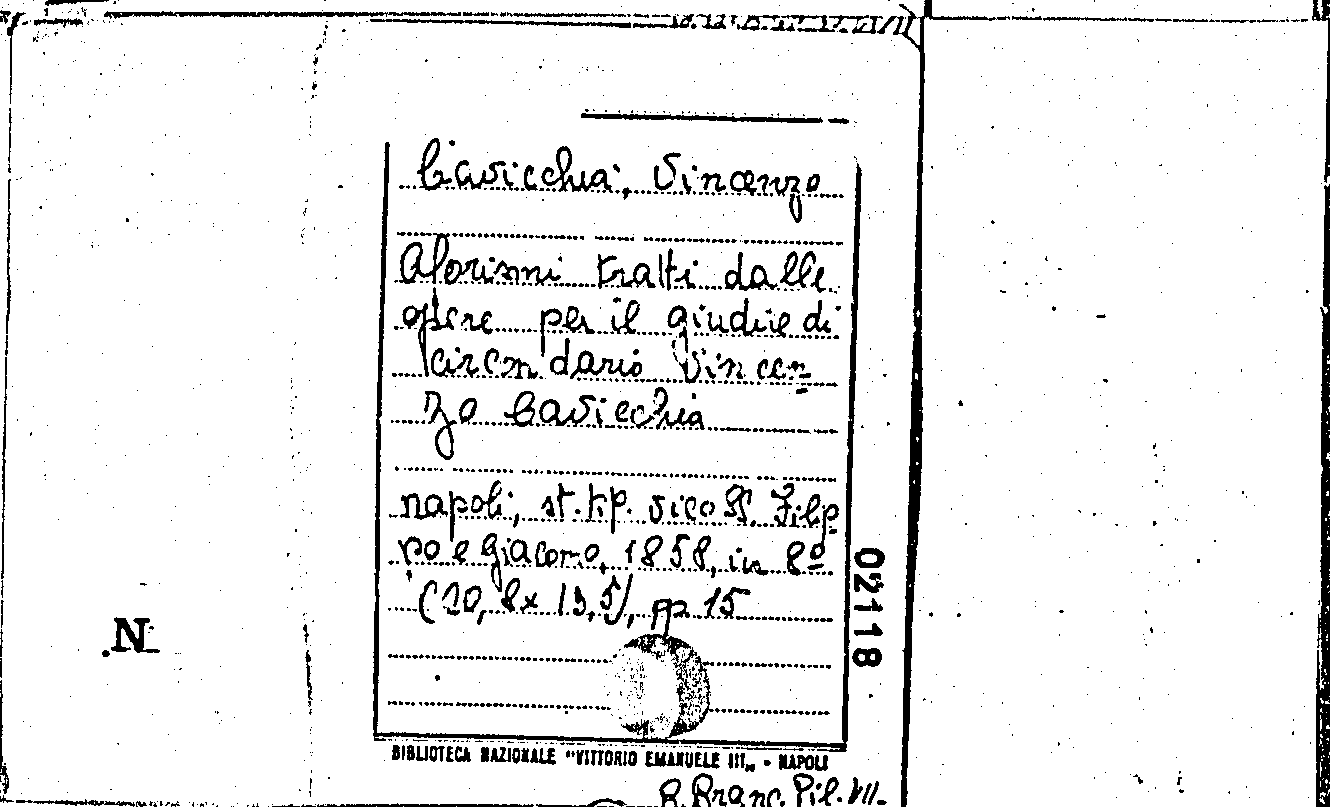 Cavicchia, Vincenzo
Aforismi tratti dalle
opere per il giudice di
circondario Vincen
zo Cavicchia
napoli, st. tip. vico SS. Filip
po e Giacomo, 1858, in 8º
(20,8x13,5), pp 15
02118
N
BIBLIOTECA NAZIONALE "VITTORIO EMANUELE III„ - NAPOLI
B. Branc. Pil. VII.